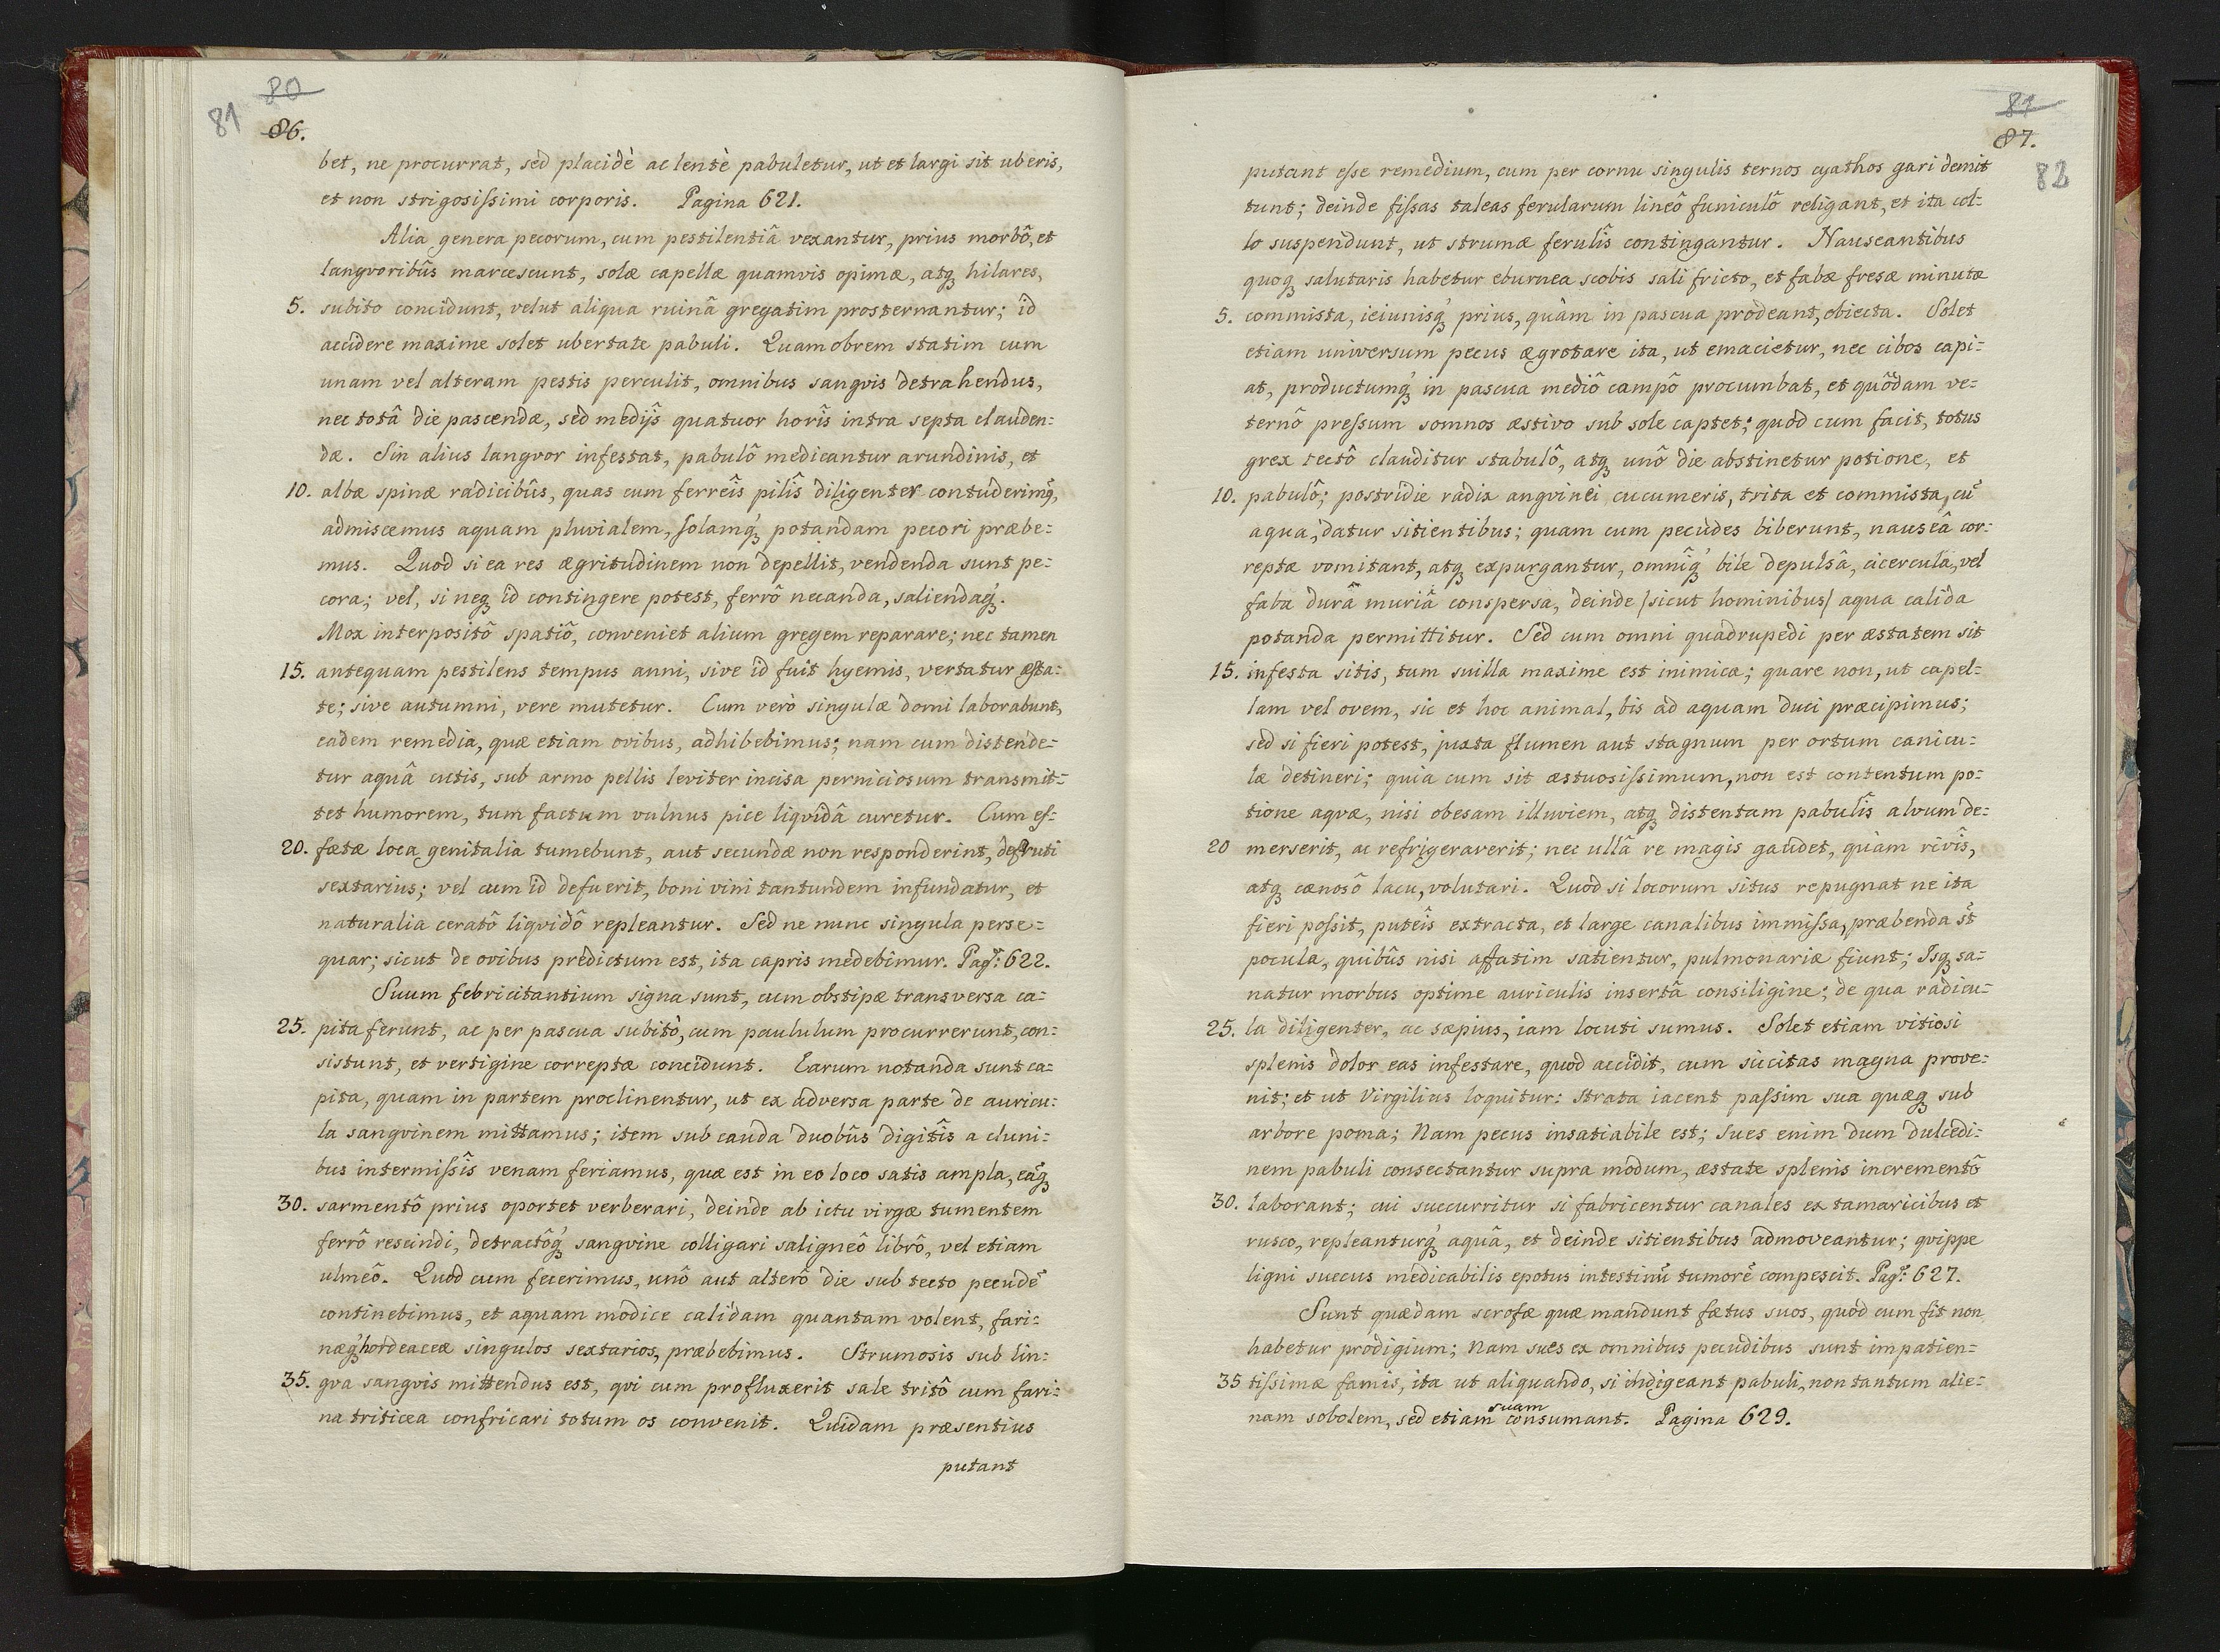 80
81
86.
bet, ne procurrat, sed placidè ac lentè pabuletur, ut et largi sit uberis,
et non strigosissimi corporis. Pagina 621.
Alia genera pecorum, cum pestilentiâ vexantur, prius morbô, et
langvoribûs marcescunt, solæ capellæ quamvis opimæ, atq́ꝫ hilares,
5. subito concidunt, velut aliqua ruinâ gregatim prosternantur; id
accidere maxime solet ubertate pabuli. Quamobrem statim cum
unam vel alteram pestis perculit, omnibus sangvis detrahendus,
nec totâ die pascendæ, sed medijs quatuor horîs intra septa clauden:
dæ. Sin alius langvor infestat, pabulô medicantur arundinis, et
10. albæ spinæ radicibûs, quas cum ferreîs pilîs diligenter contuderimꝰ,
admiscemus aquam pluvialem, solamqꝫ́ potandam pecori præbe:
mus. Quod si ea res ægritudinem non depellit, vendenda sunt pe:
cora; vel, si neqꝫ id contingere potest, ferrô necanda, saliendaqꝫ́.
Mox interpositô spatiô, conveniet alium gregem reparare; nec tamen
15. antequam pestilens tempus anni, sive id fuit hyemis, vertatur æsta:
te; sive autumni, vere mutetur. Cum verò singulæ domi laborabunt,
eadem remedia, quæ etiam ovibus, adhibebimus; nam cum distende:
tur aquâ cutis, sub armo pellis leviter incisa perniciosum transmit:
tet humorem, tum factum vulnus pice liqvidâ curetur. Cum ef:
20. fœtæ loca genitalia tumebunt, aut secundæ non responderint, defruti
sextarius; vel cum id defuerit, boni vini tantundem infundatur, et
naturalia ceratô liqvidô repleantur. Sed ne nunc singula perse:
quar; sicut de ovibus prædictum est, ita capris medebimur. Pag: 622.
Suum febricitantium signa sunt, cum obstipæ transversa ca:
25. pita ferunt, ac per pascua subitò, cum paululum procurrerunt, con:
sistunt, et vertigine correptæ concidunt. Earum notanda sunt ca:
pita, quam in partem proclinentur, ut ex adversa parte de auricu:
la sangvinem mittamus; item sub cauda duobûs digitîs a cluni:
bus intermissîs venam feriamus, quæ est in eo loco satis ampla, eâqꝫ
30. sarmentô prius oportet verberari, deinde ab ictu virgæ tumentem
ferrô rescindi, detractôqꝫ́ sangvine colligari saligneô librô, vel etiam
ulmeô. Quod cum fecerimus, unô aut alterô die sub tecto pecudē
continebimus, et aquam modice calidam quantam volent, fari:
næqꝫ́ hordeaceæ singulos sextarios, præbebimus. Strumosis sub lin:
35. gva sangvis mittendus est, qvi cum profluxerit sale tritô cum fari:
na triticea confricari totum os convenit. Quidam præsentius
putant
81
87.
82
putant esse remedium, cum per cornu singulis ternos cyathos gari demit
tunt; deinde fissas taleas ferularum lineô funiculô religant, et ita col:
lo suspendunt, ut strumæ ferulîs contingantur. Nauseantibus
quoqꝫ salutaris habetur eburnea scobis sali fricto, et fabæ fresæ minutæ
5. commista, ieiunisqꝫ́ prius, quàm in pascua prodeant, obiecta. Solet
etiam universum pecus ægrotare ita, ut emacietur, nec cibos capi:
at, productumqꝫ́ in pascua mediô campô procumbat, et quôdam ve:
ternô pressum somnos æstivo sub sole captet; quod cum facit, totus
grex tectô clauditur stabulô, atqꝫ unô die abstinetur potione, et
10. pabulô; postridie radix angvinei cucumeris, trita et commista, cū
aqua, datur sitientibus; quam cum pecudes biberunt, nauseâ cor:
reptæ vomitant, atqꝫ expurgantur, omnîqꝫ́ bile depulsâ, cicercula, vel
faba durâ muriâ conspersa, deinde /sicut hominibus/ aqua calida
potanda permittitur. Sed cum omni quadrupedi per æstatem sit
15. infesta sitis, tum suilla maxime est inimica; quare non, ut capel:
lam vel ovem, sic et hoc animal, bis ad aquam duci præcipimus;
sed si fieri potest, juxta flumen aut stagnum per ortum canicu:
læ detineri; quia cum sit æstuosissimum, non est contentum po:
tione aqvæ, nisi obesam illuviem, atqꝫ distentam pabulîs alvum de:
20 merserit, ac refrigeraverit; nec ullâ re magis gaudet, quàm rivîs,
atqꝫ cænosô lacu, volutari. Quod si locorum situs repugnat ne ita
fieri possit, puteîs extracta, et large canalibus immissa, præbenda st̄
pocula, quibûs nisi affatim satientur, pulmonariæ fiunt; Isqꝫ sa:
natur morbus optime auriculis insertâ consiligine; de qua radicu:
25. la diligenter, ac sæpius, iam locuti sumus. Solet etiam vitiosi
splenis dolor eas infestare, quod accidit, cum siccitas magna prove:
nit; et ut Virgilius loquitur: strata iacent passim sua quæqꝫ sub
arbore poma; Nam pecus insatiabile est; sues enim dum dulcedi:
nem pabuli consectantur supra modum, æstate splenis incrementô
30. laborant; cui succurritur si fabricentur canales ex tamaricibus et
rusco, repleanturqꝫ́ aquâ, et deinde sitientibus admoveantur; qvippe
ligni succus medicabilis epotus intestinū tumorē compescit. Pag: 627.
Sunt quædam scrofæ quæ mandunt fætus suos, quod cum fit non
habetur prodigium; Nam sues ex omnibus pecudibus sunt impatien:
35 tissimæ famis, ita ut aliquando, si indigeant pabuli, non tantum alie:
nam sobolem, sed etiam suam consumant. Pagina 629.